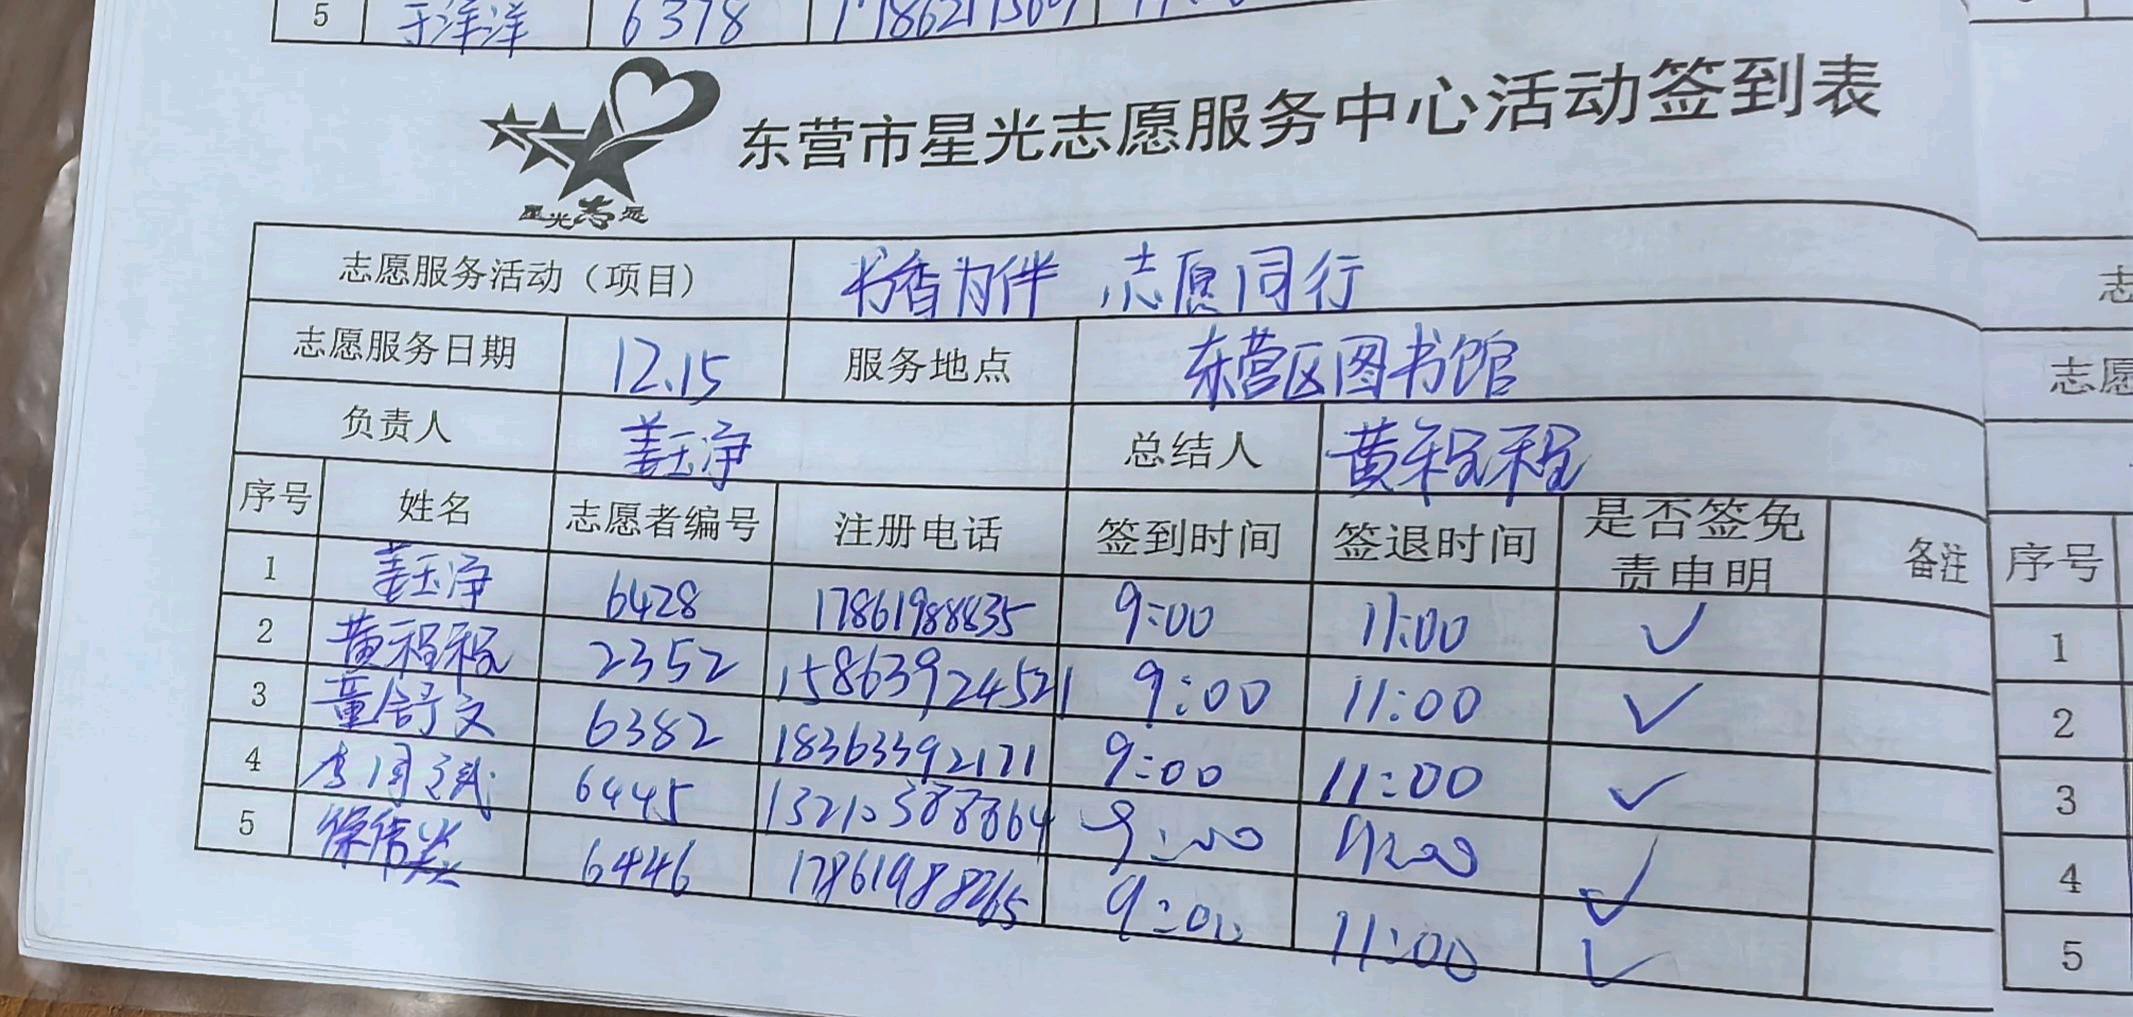 5 于洋洋 6378
东营市星光志愿服务中心活动签到表
星光志愿
志愿服务活动（项目） 书香为伴 志愿同行
志愿服务日期 12.15 服务地点 东营区图书馆
负责人 姜玉净 总结人 黄程程
序号 姓名 志愿者编号 注册电话 签到时间 签退时间 是否签免责申明 备注
1 姜玉净 6428 17861988835 9:00 11:00 ✓
2 黄程程 2352 15863924521 9:00 11:00 ✓
3 董舒文 6382 18363392171 9:00 11:00 ✓
4 6445 9:00 11:00 ✓
5 6446 17861988265 9:00 11:00 ✓
志
志愿
序号
1
2
3
4
5